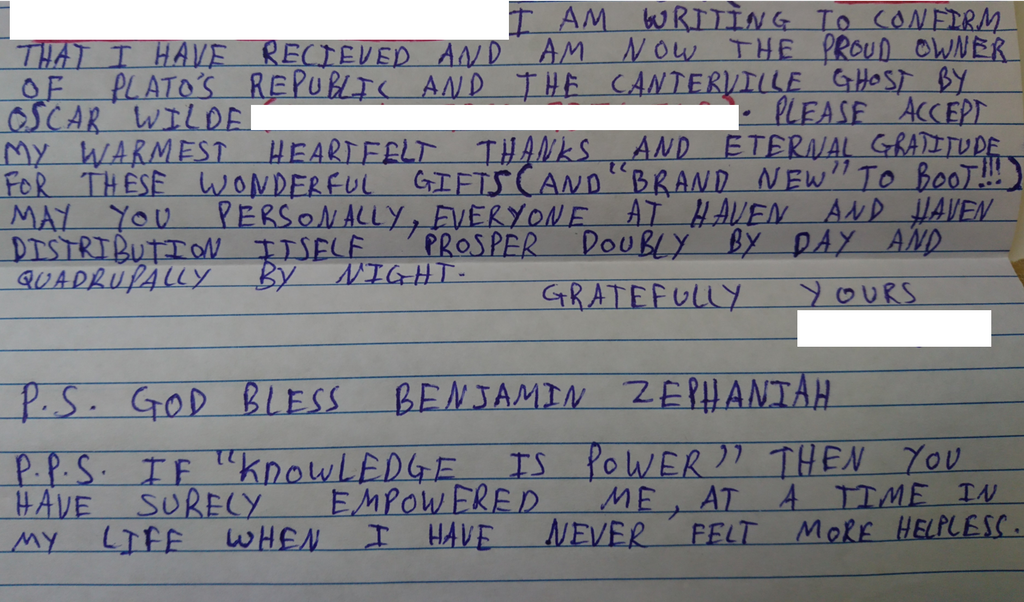 I AM WRITING TO CONFIRM
THAT I HAVE RECIEVED AND AM NOW THE PROUD OWNER
OF PLATO'S REPUBLIC AND THE CANTERVILLE GHOST BY
OSCAR WILDE . PLEASE ACCEPT
MY WARMEST HEARTFELT THANKS AND ETERNAL GRATITUDE
FOR THESE WONDERFUL GIFTS (AND "BRAND NEW" TO BOOT!!!)
MAY YOU PERSONALLY, EVERYONE AT HAVEN AND HAVEN
DISTRIBUTION ITSELF PROSPER DOUBLY BY DAY AND
QUADRUPALLY BY NIGHT.
GRATEFULLY YOURS
P.S. GOD BLESS BENJAMIN ZEPHANIAH
P.P.S. IF "KNOWLEDGE IS POWER" THEN YOU
HAVE SURELY EMPOWERED ME, AT A TIME IN
MY LIFE WHEN I HAVE NEVER FELT MORE HELPLESS.